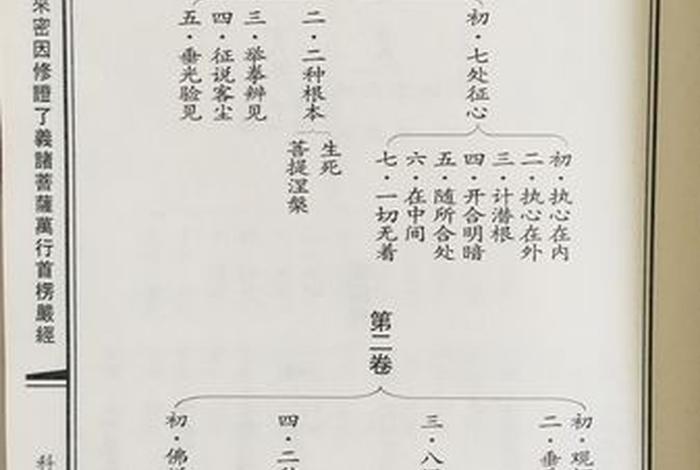 初·七处征心
初·执心在内
二·执心在外
三·计潜根
四·开合明暗
五·随所合处
六·在中间
七·一切无着
二·二种根本
生死
菩提涅槃
三·举拳辨见
四·征说客尘
五·垂光验见
第二卷
初·观
二·垂
三·八
四·二
初·佛
來密因修證了義諸菩薩萬行首楞嚴經
科